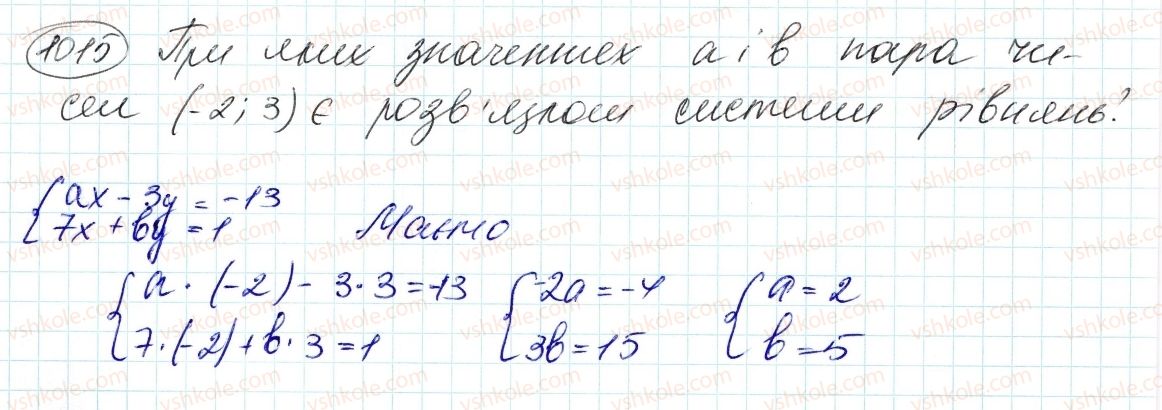 1015 При яких значеннях a і b пара чи-
сел (-2; 3) є розв'язком системи рівнянь?
{ax - 3y = -13
{7x + by = 1 Маємо
{a · (-2) - 3·3 = -13 {-2a = -4 {a = 2
{7·(-2) + b·3 = 1 {3b = 15 {b = 5
vshkole.com